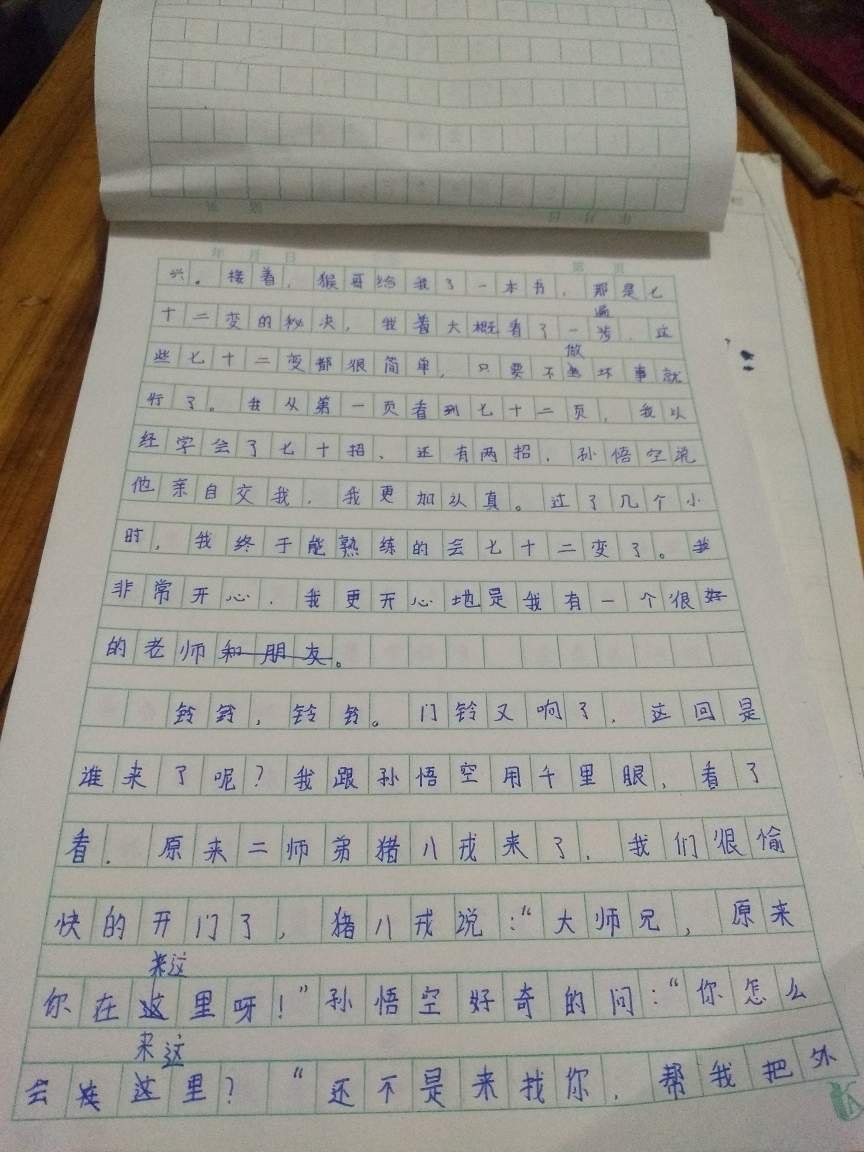 年 月 日 第 页
兴。接着,猴哥给我了一本书,那是七
十二变的秘决,我着大概看了一遍,这
些七十二变都很简单,只要不做坏事就
行了。我从第一页看到七十二页,我以
经学会了七十招,还有两招,孙悟空说
他亲自交我,我更加认真。过了几个小
时,我终于能熟练的会七十二变了。我
非常开心,我更开心地是我有一个很好
的老师和朋友。
铃铃,铃铃。门铃又响了,这回是
谁来了呢?我跟孙悟空用千里眼,看了
看,原来二师弟猪八戒来了,我们很偷
快的开门了,猪八戒说:“大师兄,原来
来这
你在这里呀!”孙悟空好奇的问:“你怎么
来这
会这里?“还不是来找你,帮我把外